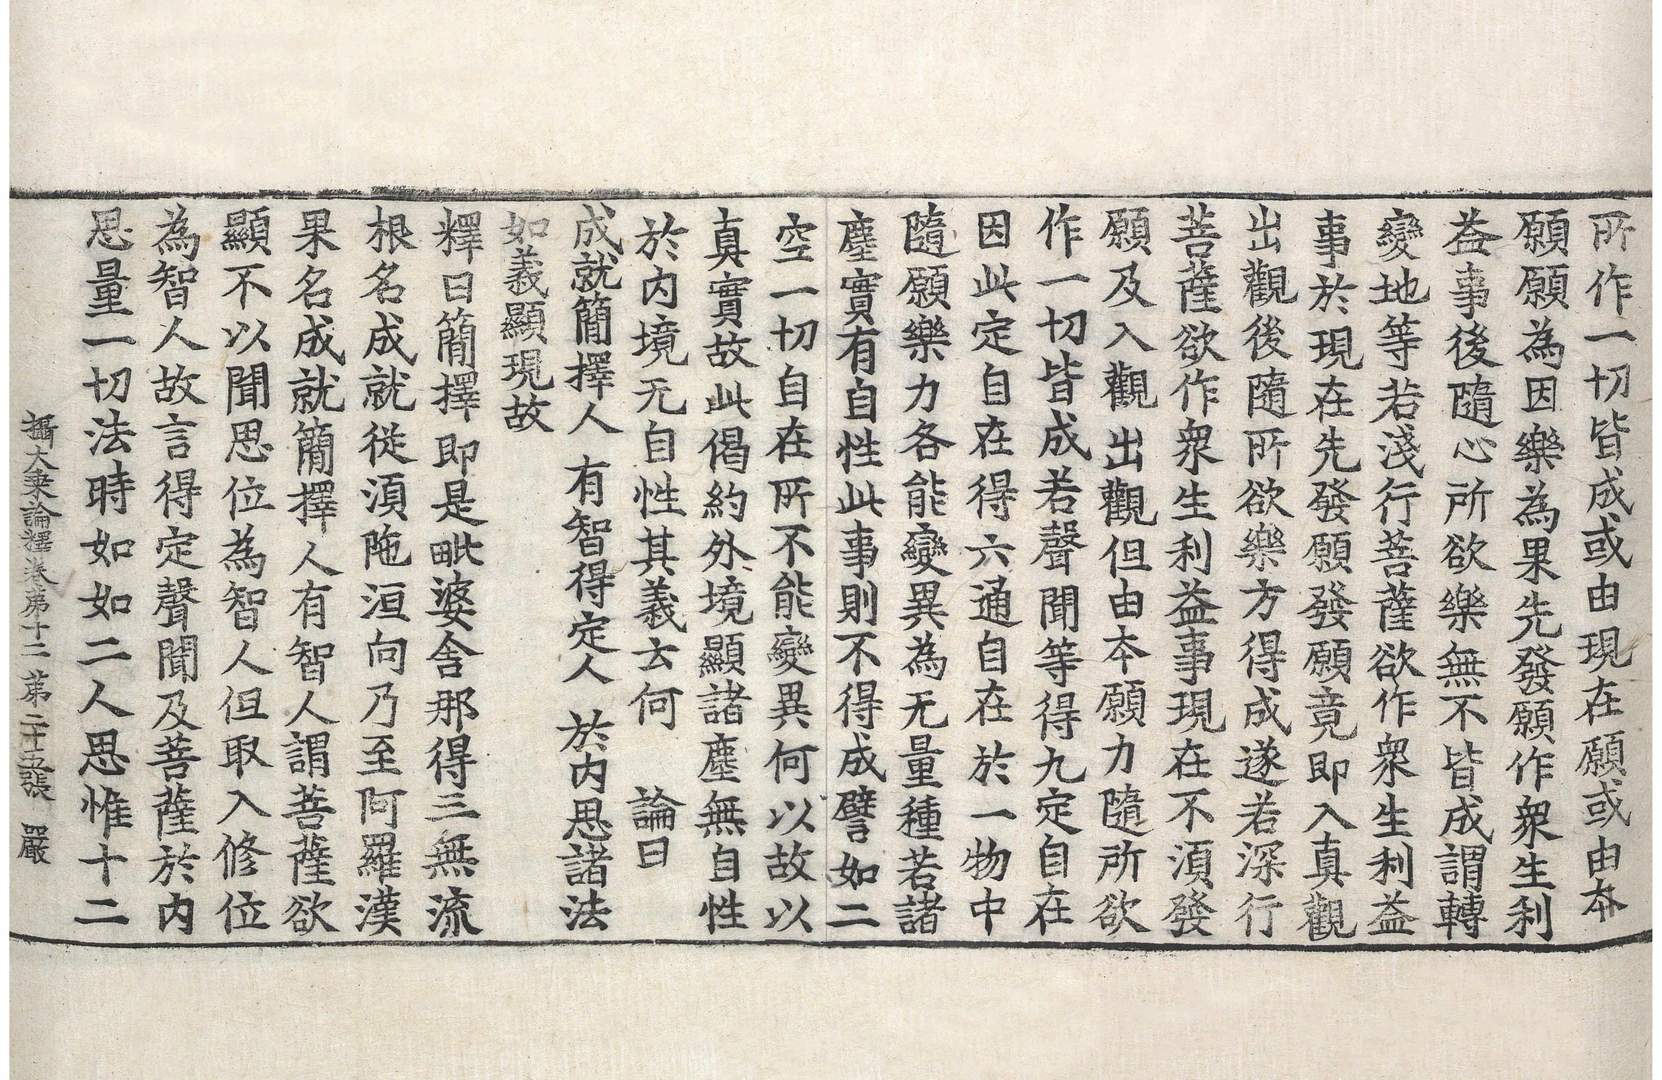 所作一切皆成或由現在願或由本
願願為因樂為果先發願作衆生利
益事後隨心所欲樂無不皆成謂轉
變地等若淺行菩薩欲作衆生利益
事於現在先發願發願竟即入真觀
出觀後隨所欲樂方得成遂若深行
菩薩欲作衆生利益事現在不湏發
願及入觀出觀但由本願力隨所欲
作一切皆成若聲聞等得九定自在
因此定自在得六通自在於一物中
隨願樂力各能變異為无量種若諸
塵實有自性此事則不得成譬如二
空一切自在所不能變異何以故以
真實故此偈約外境顯諸塵無自性
於内境无自性其義云何　論曰
成就簡擇人　有智得定人　於内思諸法
如義顯現故
釋曰簡擇即是毗婆舍那得三無流
根名成就從湏陁洹向乃至阿羅漢
果名成就簡擇人有智人謂菩薩欲
顯不以聞思位為智人但取入修位
為智人故言得定聲聞及菩薩於内
思量一切法時如如二人思惟十二
攝大乘論釋卷第十二　第二十五張　嚴